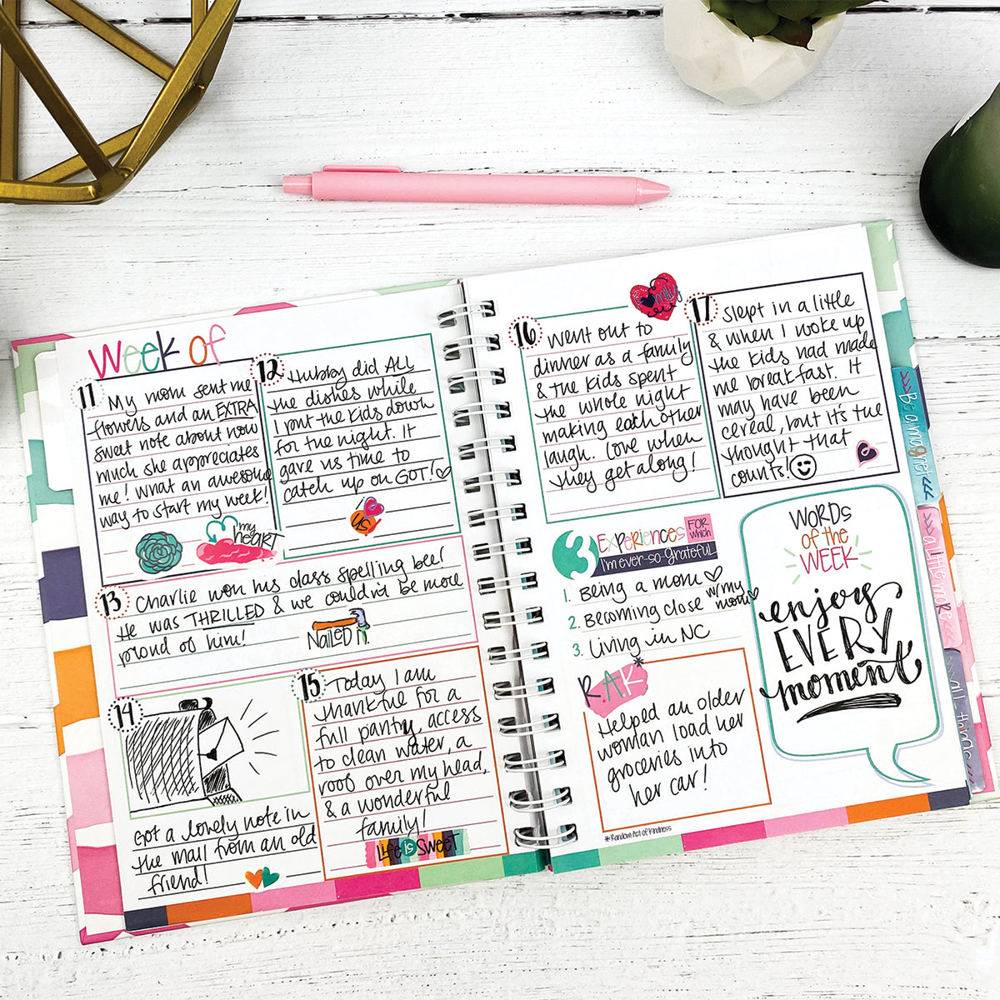 Week of
11
My mom sent me
flowers and an EXTRA
sweet note about how
much she appreciates
me! What an awesome
way to start my week!
my
heart
12
Hubby did ALL
the dishes while
I put the kids down
for the night. It
gave us time to
catch up on GOT!
13
Charlie won his class spelling bee!
He was THRILLED & we couldn't be more
proud of him!
Nailed it
14
Got a lovely note in
the mail from an old
friend!
15
Today I am
thankful for a
full pantry, access
to clean water, a
roof over my head,
& a wonderful
family!
Life is Sweet
16
Family
Went out to
dinner as a family
& the kids spent
the whole night
making each other
laugh. Love when
they get along!
17
Slept in a little
& when I woke up
the kids had made
me breakfast. It
may have been
cereal, but it's the
thought that
counts!
3 Experiences FOR which
I'm ever-so-grateful
1. Being a mom
2. Becoming close w/my
mom
3. Living in NC
R.A.K*
Helped an older
woman load her
groceries into
her car!
*Random Act of Kindness
WORDS
of the
WEEK
enjoy
EVERY
moment
a little more
all things